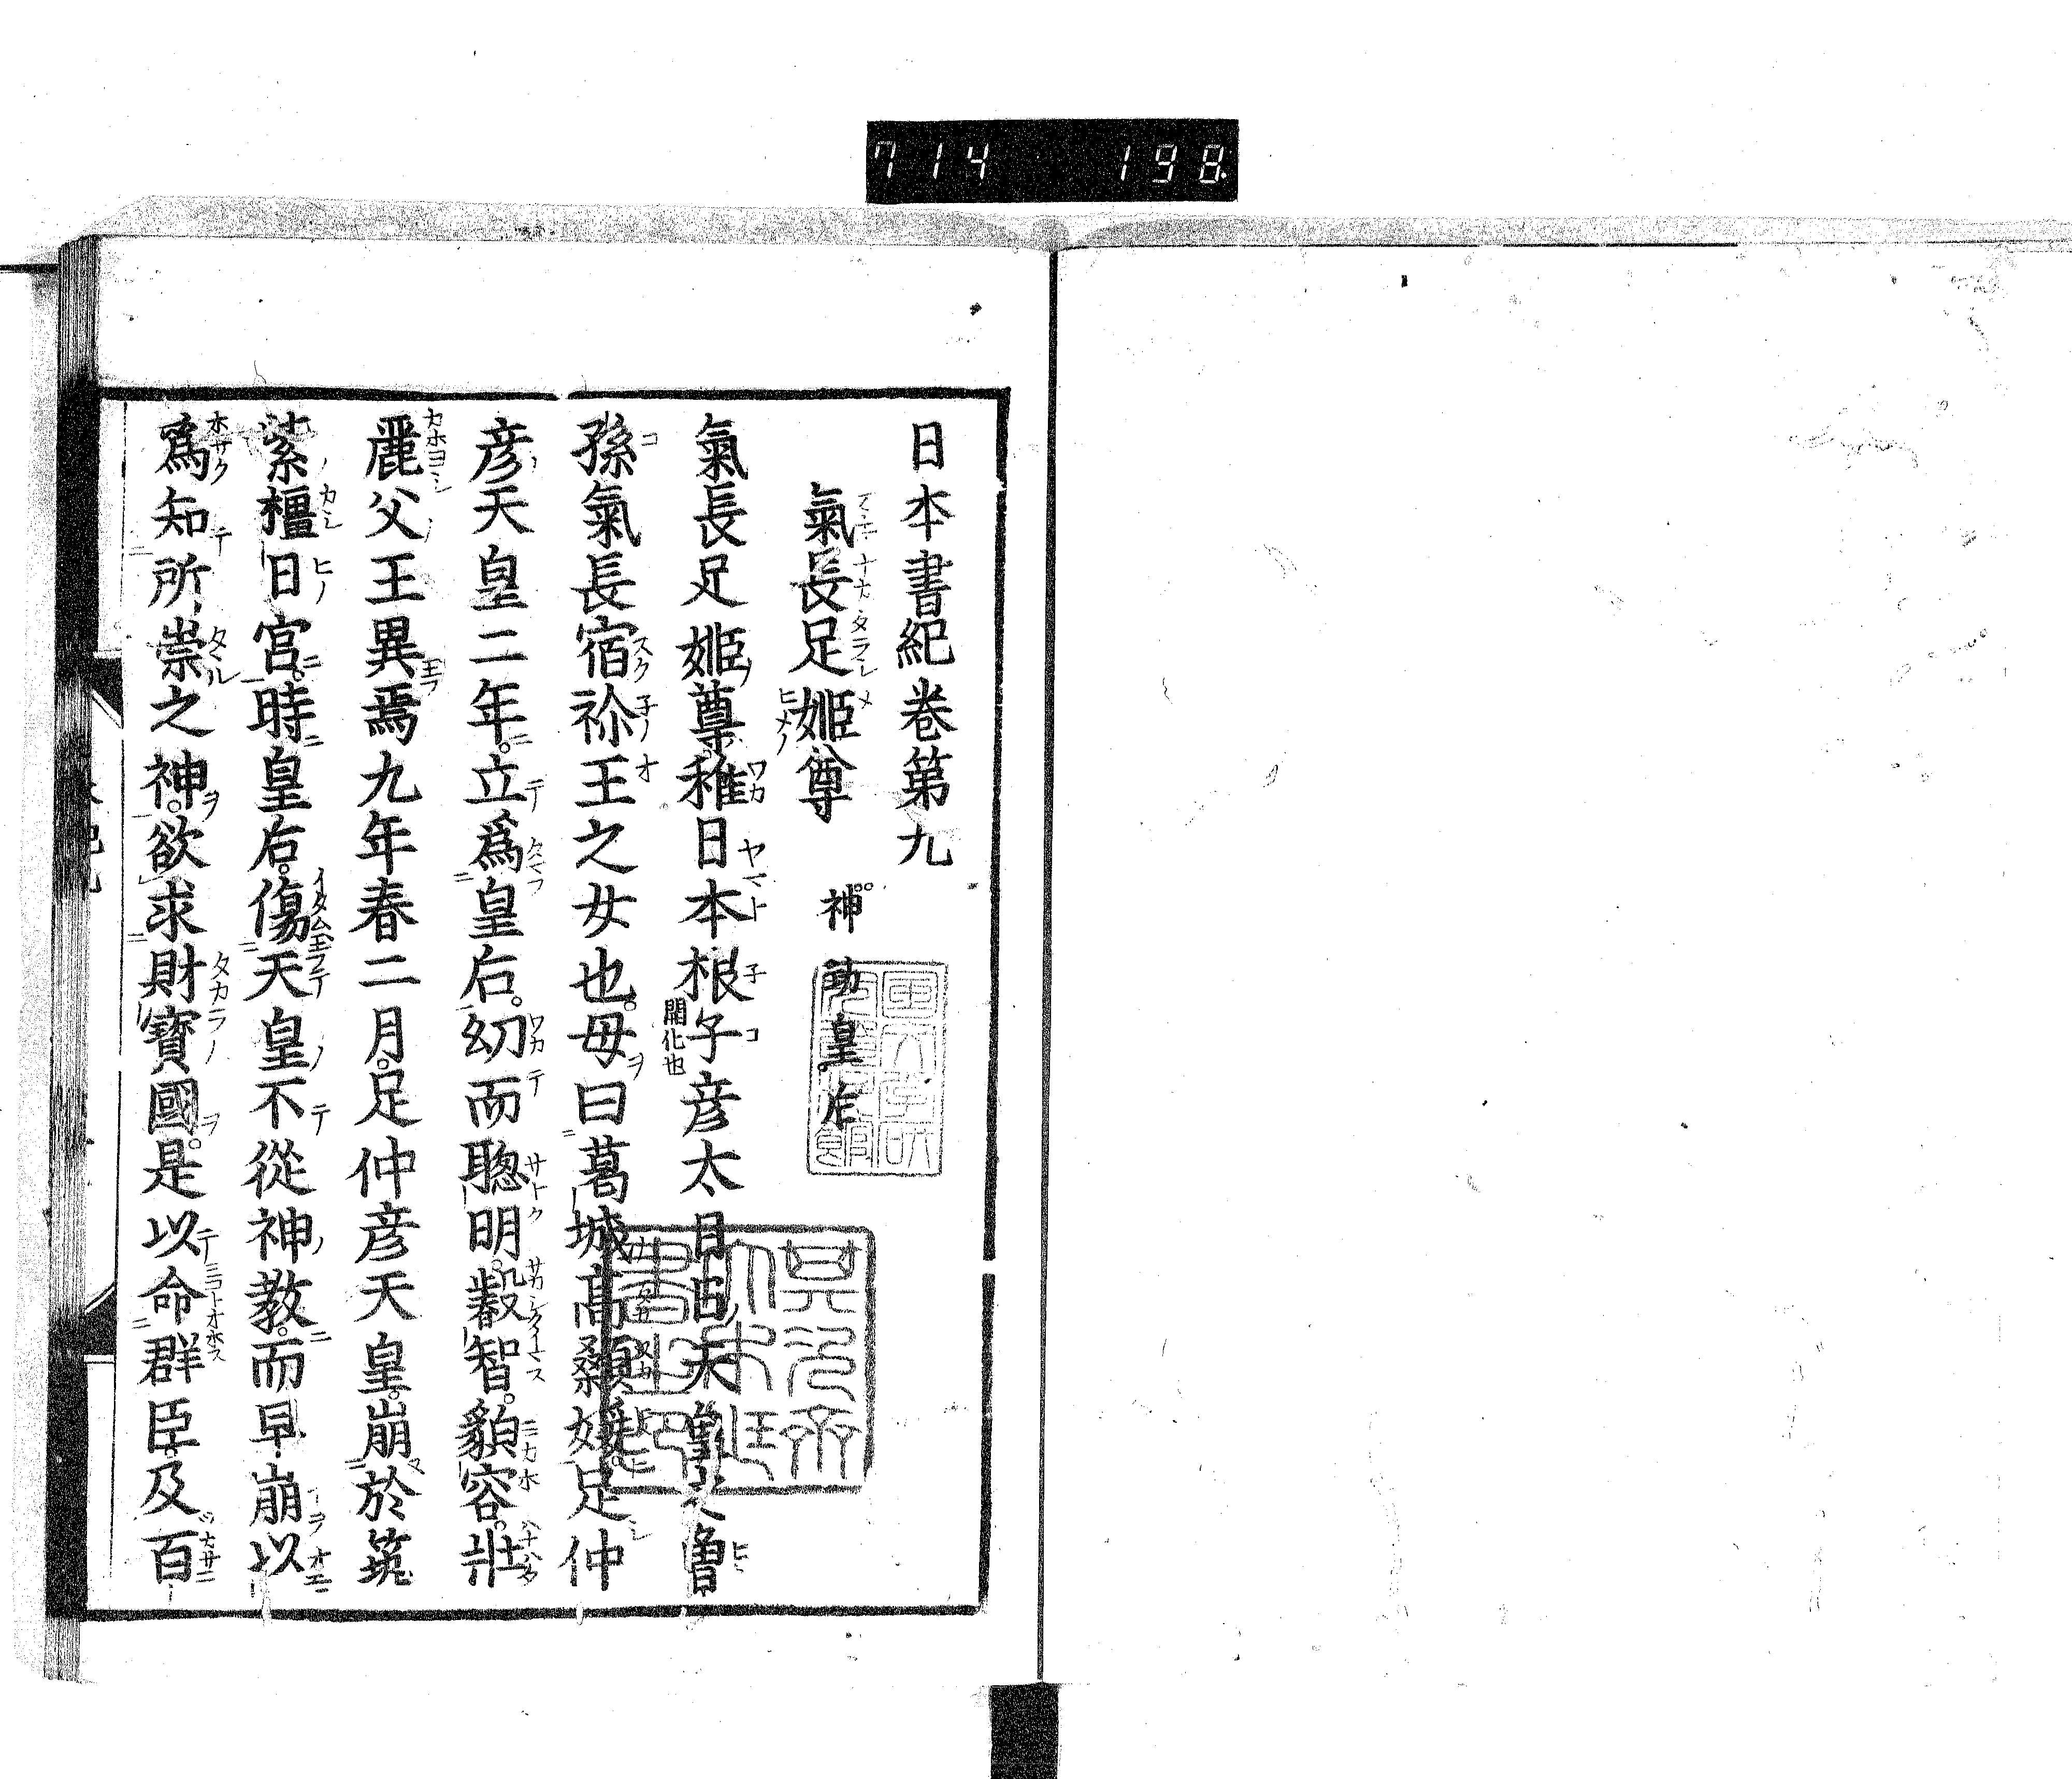 714 198
日本書紀卷第九
氣長足姬尊 神功皇后
氣長足姬尊。稚日本根子彦太日日天皇之曾
開化也
孫氣長宿祢王之女也。母曰葛城高顙媛。足仲
彦天皇二年。立爲皇后。幼而聰明。叡智。貌容。壯
麗父王異焉九年春二月。足仲彦天皇。崩於筑
紫橿日宮。時皇后。傷天皇不從神教。而早崩以
爲知所崇之神。欲求財寶國。是以命群臣。及百